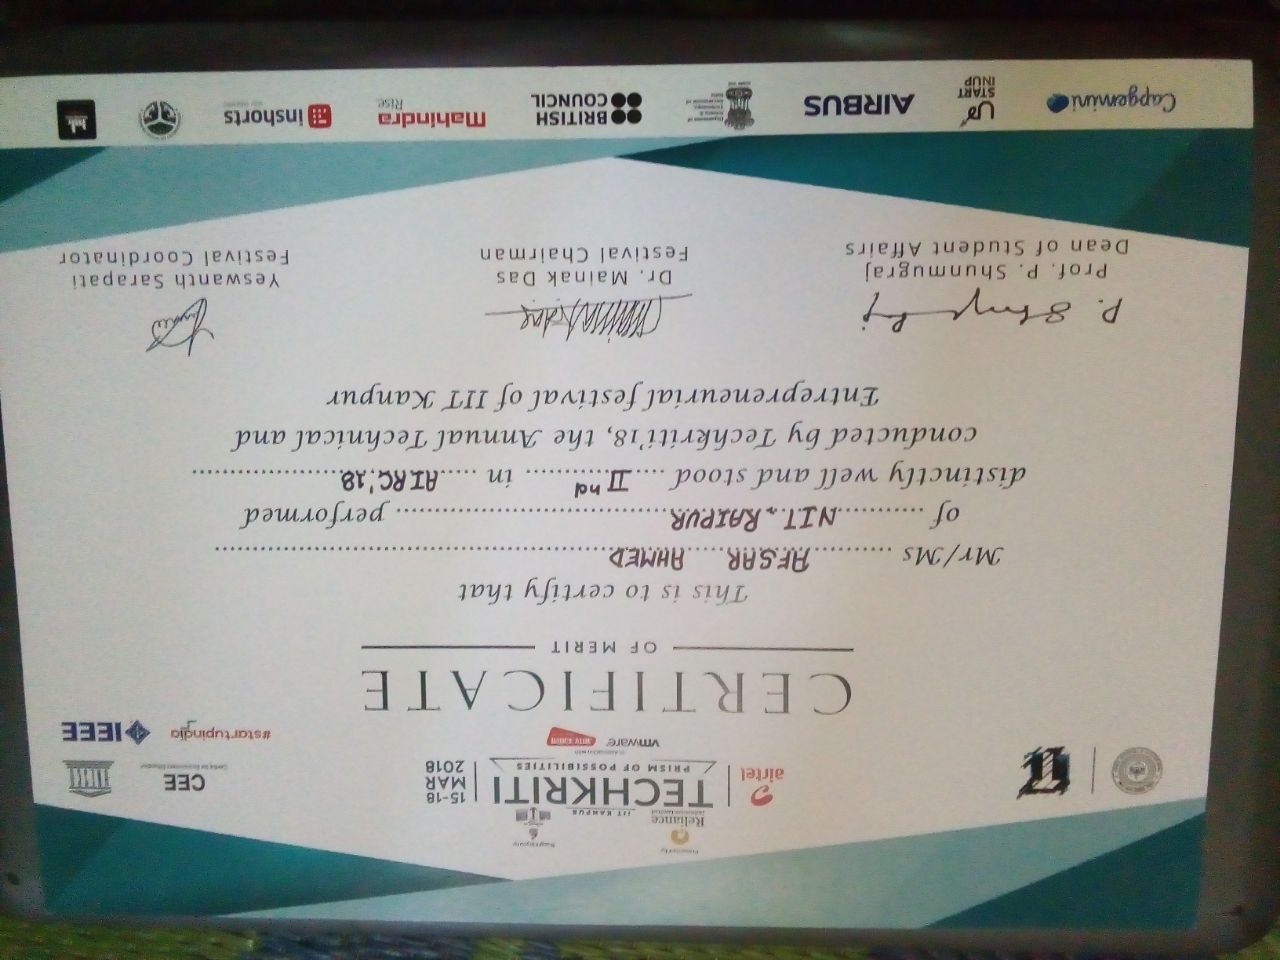 Reliance
airtel
TECHKRITI
IIT KANPUR
PRISM OF POSSIBILITIES
15-18
MAR
2018
CEE
vmware
#startupindia
IEEE
CERTIFICATE
OF MERIT
This is to certify that
Mr/Ms ........AFSAR AHMED........
of ........NIT, RAIPUR........ performed
distinctly well and stood ....IInd.... in ....AIRC'18....
conducted by Techkriti'18, the Annual Technical and
Entrepreneurial festival of IIT Kanpur
Prof. P. Shunmugraj
Dean of Student Affairs
Dr. Mainak Das
Festival Chairman
Yeswanth Sarapati
Festival Coordinator
Capgemini
START
INUP
AIRBUS
BRITISH
COUNCIL
Mahindra
Rise.
inshorts